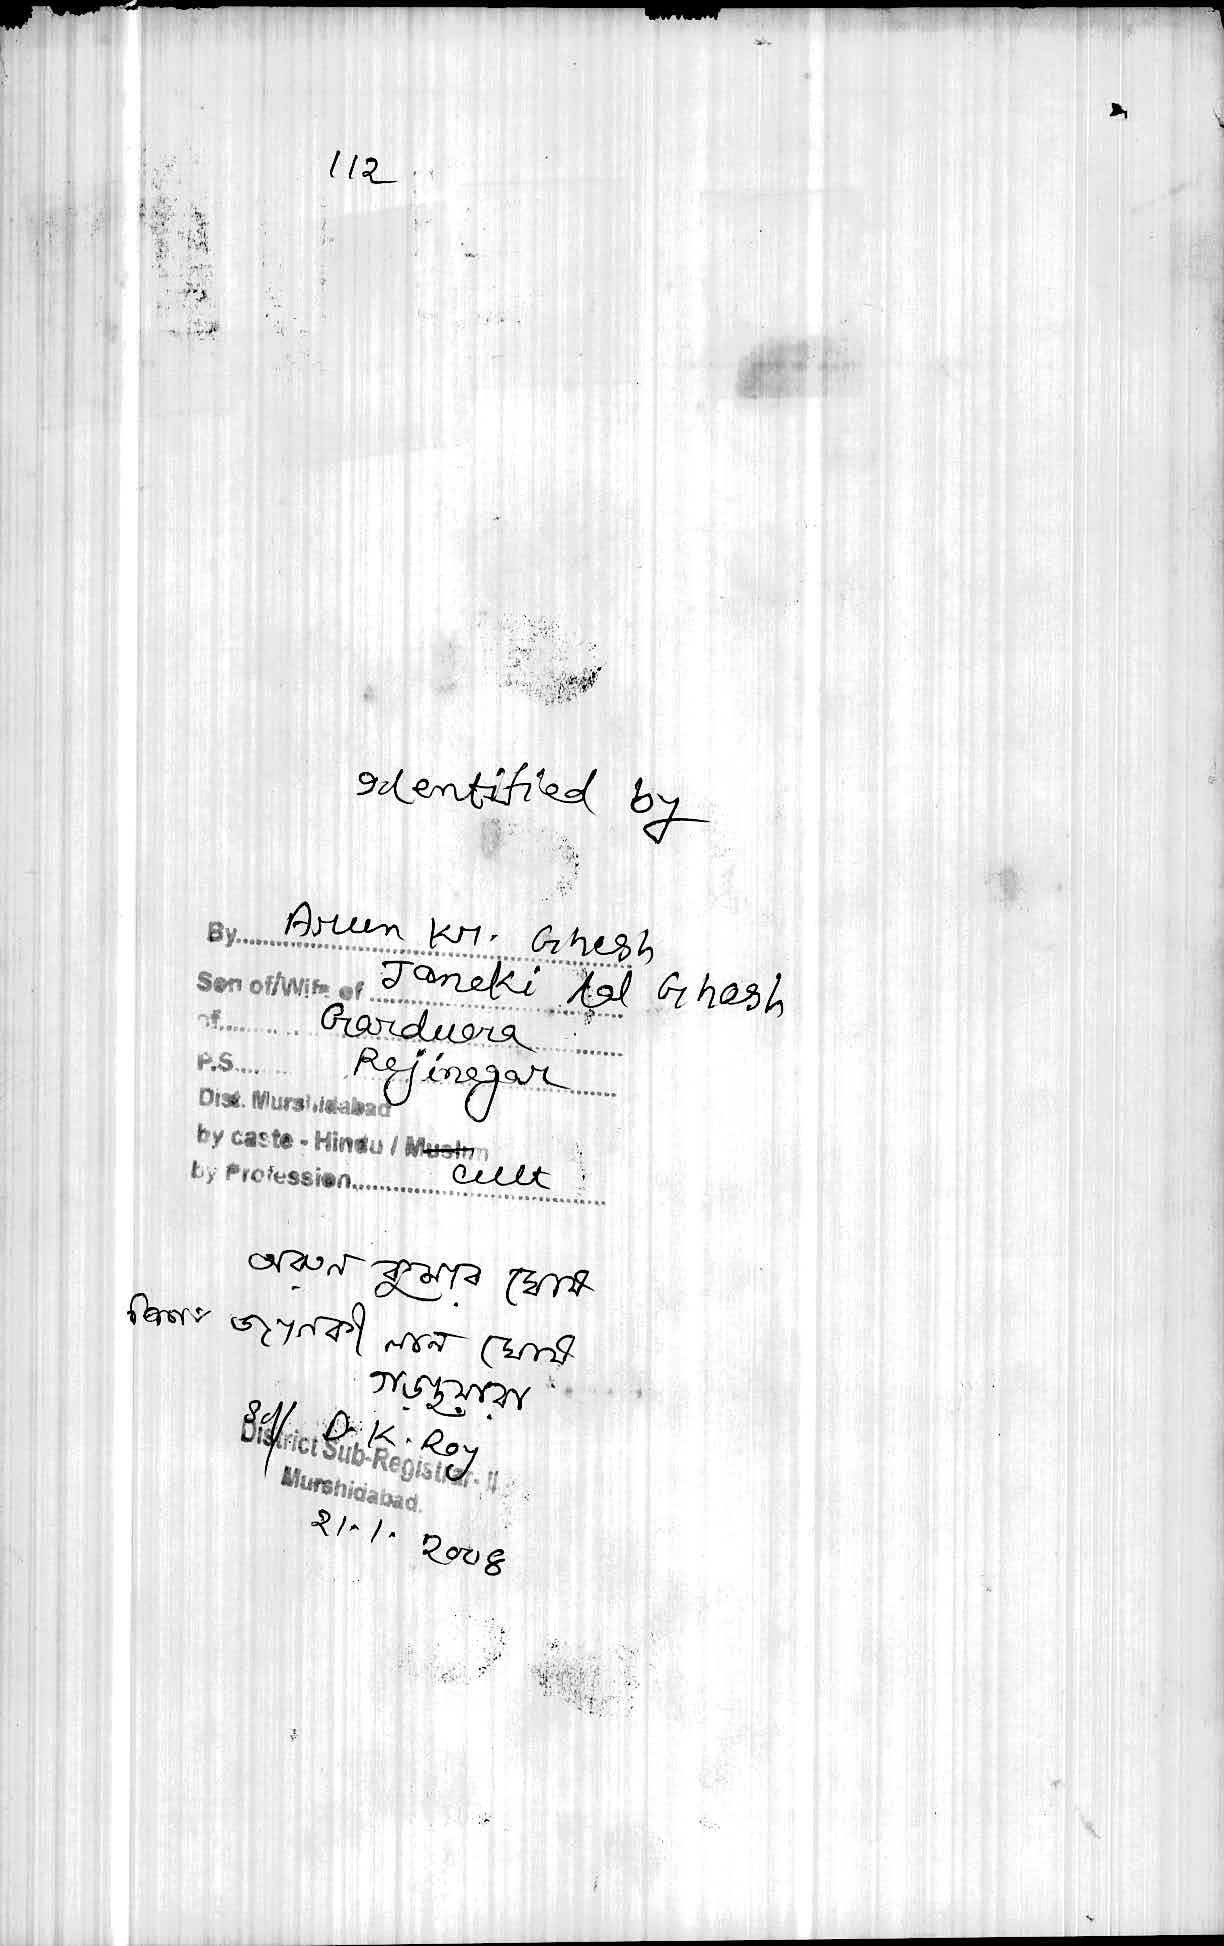 112
Identified by
By Arun Kr. Ghosh
Son of/Wife of Janeki Lal Ghosh
of Garduara
P.S. Rejinegar
Dist. Murshidabad
by caste - Hindu / Muslim
by Profession Cult
অরুন কুমার ঘোষ
পিতা জানকী লাল ঘোষ
গড়দুয়ারা
Sd/ D. K. Roy
District Sub-Registrar - II
Murshidabad.
21. 1. 2008